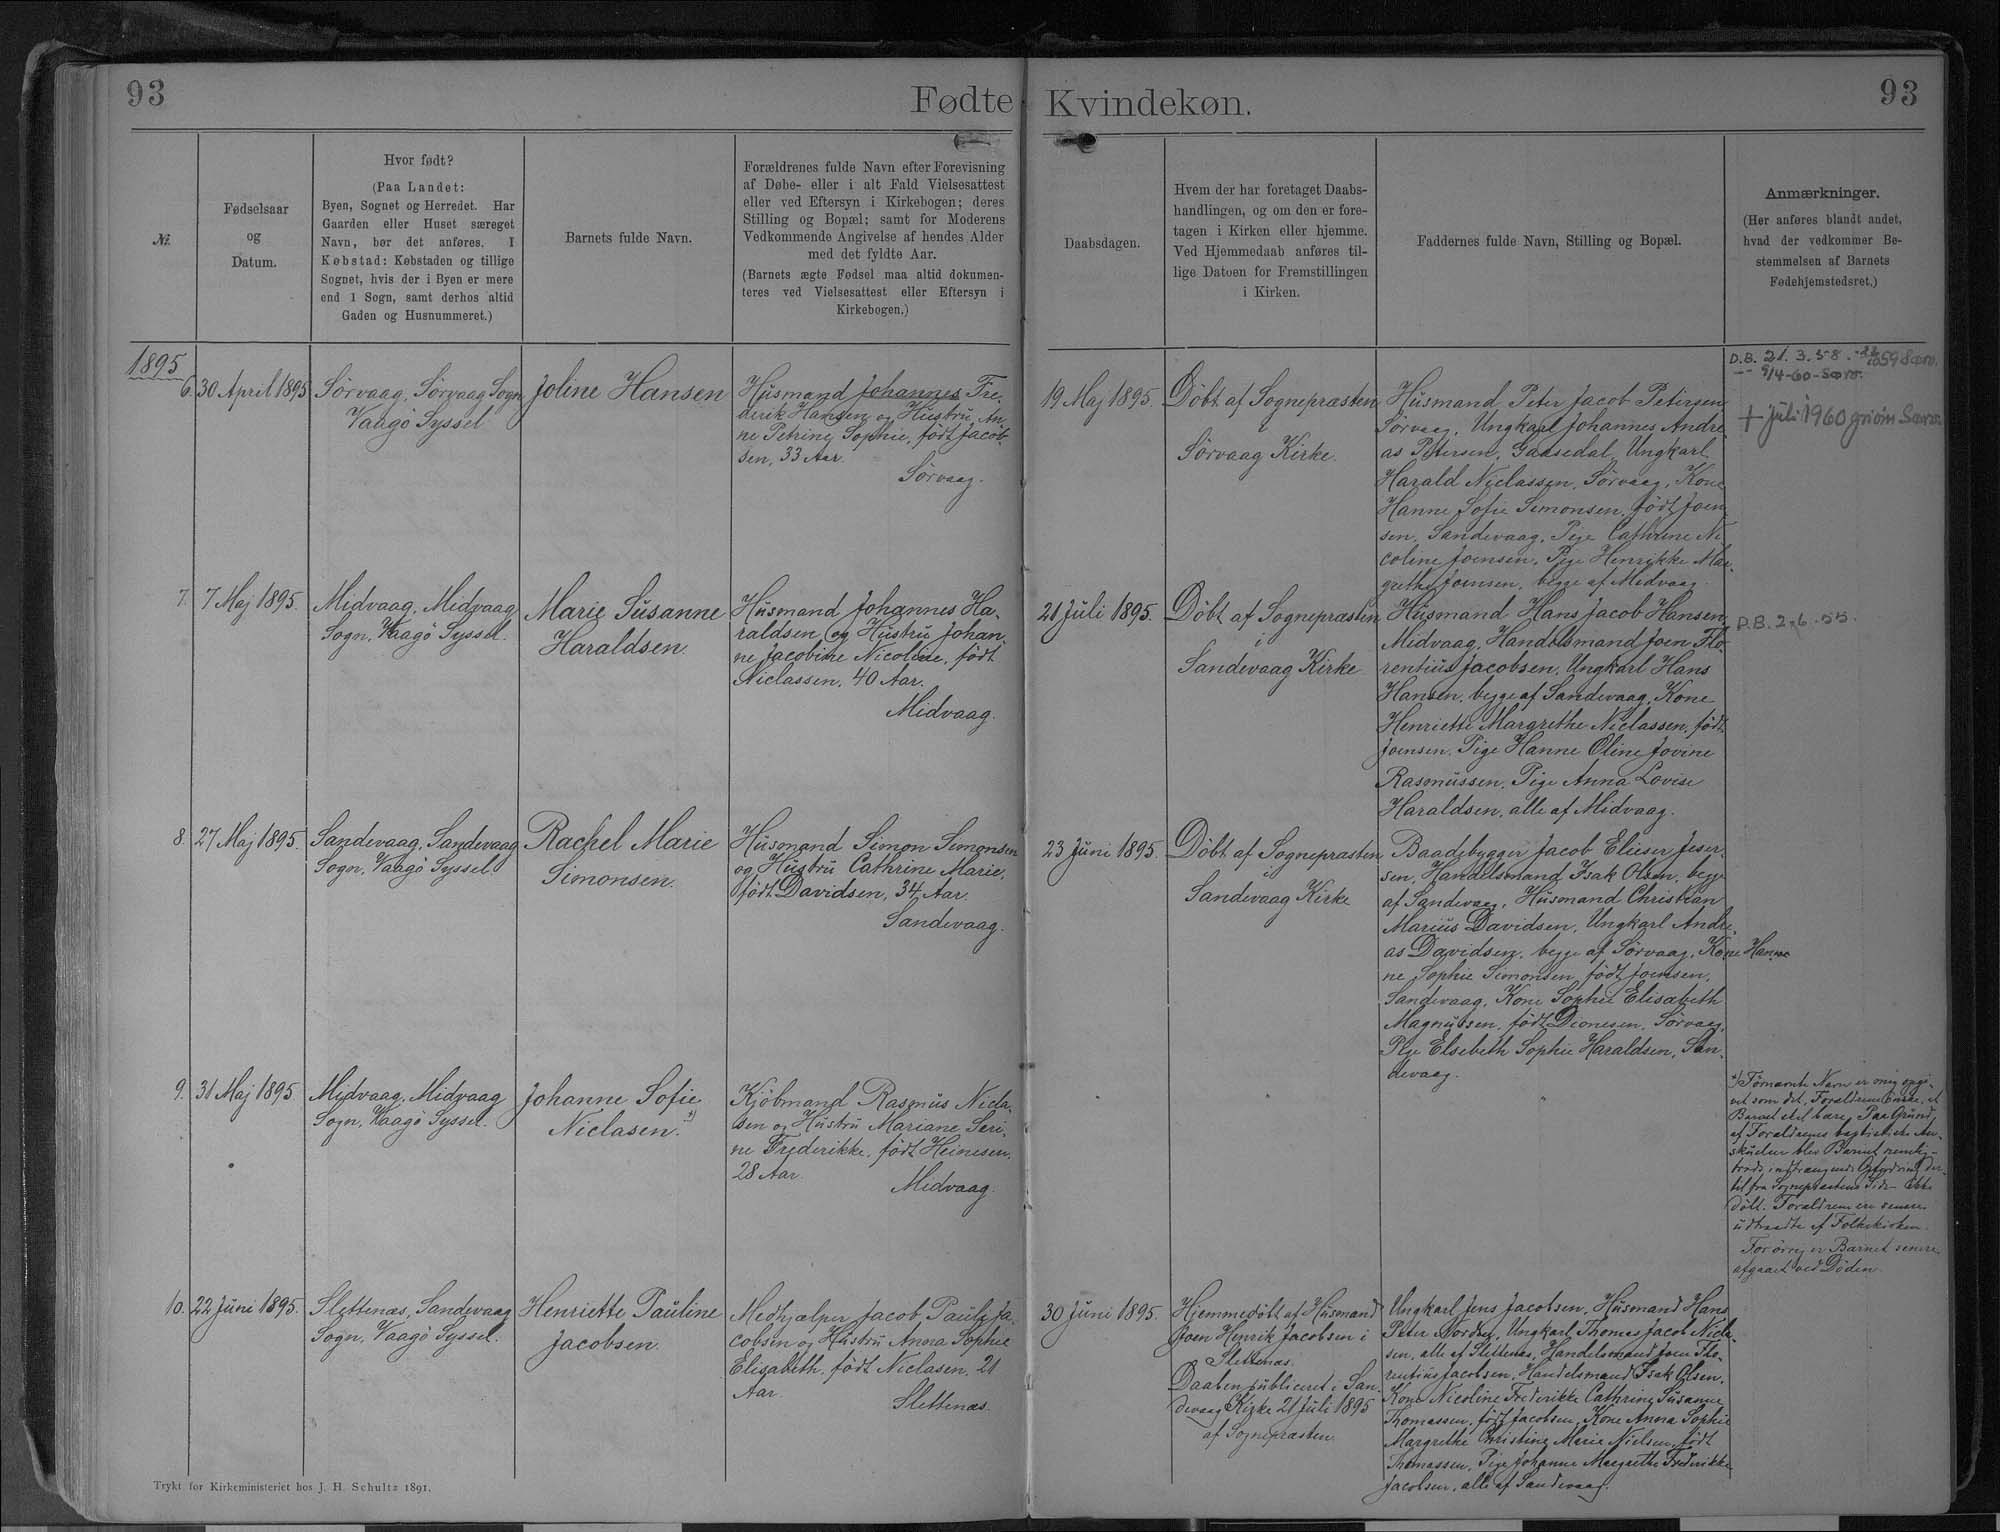 93
Fødte
Kvindekøn.
93
№.
Fødselsaar
og
Datum.
Hvor født?
(Paa Landet:
Byen, Sognet og Herredet. Har
Gaarden eller Huset særeget
Navn, bør det anføres. I
Købstad: Købstaden og tillige
Sognet, hvis der i Byen er mere
end 1 Sogn, samt derhos altid
Gaden og Husnummeret.)
Barnets fulde Navn.
Forældrenes fulde Navn efter Forevisning
af Døbe- eller i alt Fald Vielsesattest
eller ved Eftersyn i Kirkebogen; deres
Stilling og Bopæl; samt for Moderens
Vedkommende Angivelse af hendes Alder
med det fyldte Aar.
(Barnets ægte Fødsel maa altid dokumen-
teres ved Vielsesattest eller Eftersyn i
Kirkebogen.)
Daabsdagen.
Hvem der har foretaget Daabs-
handlingen, og om den er fore-
tagen i Kirken eller hjemme.
Ved Hjemmedaab anføres til-
lige Datoen for Fremstillingen
i Kirken.
Faddernes fulde Navn, Stilling og Bopæl.
Anmærkninger.
(Her anføres blandt andet,
hvad der vedkommer Be-
stemmelsen af Barnets
Fødehjemstedsret.)
1895
6.
30 April 1895
Sörvaag, Sörvaag Sogn
Vaagö Syssel
Joline Hansen
Husmand Johannes Fre-
derik Hansen og Hustru An-
ne Petrine Sophie, födt Jacob-
sen, 33 Aar.
Sörvaag.
19 Maj 1895.
Döbt af Sognepræsten
i
Sörvaag Kirke.
Husmand Peter Jacob Petersen
Sörvaag, Ungkarl Johannes Andre-
as Petersen, Gaasedal, Ungkarl
Harald Niclassen, Sörvaag, Kone
Hanne Sofie Simonsen, födt Joen-
sen, Sandevaag, Pige Cathrine Ni-
coline Joensen, Pige Henrikke Mar-
grethe Joensen, begge af Midvaag.
D.B. 21. 3. 58.
9/4-60-Sørv.
+ juli 1960
7.
7 Maj 1895.
Midvaag, Midvaag
Sogn, Vaagö Syssel.
Marie Susanne
Haraldsen.
Husmand Johannes Ha-
raldsen og Hustru Johan-
ne Jacobine Nicoline, födt
Niclassen, 40 Aar.
Midvaag.
21 Juli 1895.
Döbt af Sognepræsten
i
Sandevaag Kirke
Husmand Hans Jacob Hansen,
Midvaag, Handelsmand Joen Flo-
rentius Jacobsen, Ungkarl Hans
Hansen, begge af Sandevaag, Kone
Henriette Margrethe Niclassen, födt
Joensen, Pige Hanne Oline Jovine
Rasmussen, Pige Anna Lovise
Haraldsen, alle af Midvaag.
D.B. 2-6-55.
8.
27 Maj 1895.
Sandevaag, Sandevaag
Sogn, Vaagö Syssel.
Rachel Marie
Simonsen.
Husmand Simon Simonsen
og Hustru Cathrine Marie,
födt Davidsen, 34 Aar.
Sandevaag.
23 Juni 1895.
Döbt af Sognepræsten
i
Sandevaag Kirke
Baadebygger Jacob Elieser Jeser-
sen, Handelsmand Isak Olsen, begge
af Sandevaag, Husmand Christian
Marius Davidsen, Ungkarl Andre-
as Davidsen, begge af Sörvaag, Kone Hanne
ne Sophie Simonsen, födt Joensen,
Sandevaag, Kone Sophie Elisabeth
Magnussen, födt Dionesen, Sörvaag,
Pige Elsebeth Sophie Haraldsen, San-
devaag.
9.
31 Maj 1895
Midvaag, Midvaag
Sogn, Vaagö Syssel.
Johanne Sofie
Niclasen. *)
Kjöbmand Rasmus Nicla-
sen og Hustru Mariane Seri-
ne Frederikke, födt Heinesen,
28 Aar.
Midvaag.
*) Förnævnte Navn er mig opgi-
vet som det, Forældrene önske, at
Barnet skal bære. Paa Grund
af Forældrenes baptistiske An-
skuelser blev Barnet nemlig -
trods indtrængende Opfordring der-
til fra Sognepræstens Side - ikke
döbt. Forældrene ere senere
udtraadte af Folkekirken.
Forövrig er Barnet senere
afgaaet ved Döden.
10.
22 Juni 1895.
Slettenæs, Sandevaag
Sogn, Vaagö Syssel.
Henriette Pauline
Jacobsen.
Medhjælper Jacob Pauli Ja-
cobsen og Hustru Anna Sophie
Elisabeth, födt Niclasen, 21
Aar.
Slettenæs.
30 Juni 1895.
Hjemmedöbt af Husmand
Joen Henrik Jacobsen i
Slettenæs.
Daaben publiceret i San-
devaag Kirke 21 Juli 1895
af Sognepræsten.
Ungkarl Jens Jacobsen, Husmand Hans
Peter Nordsö, Ungkarl Thomas Jacob Nicla-
sen, alle af Slettenæs, Handelsmand Joen Flo-
rentius Jacobsen, Handelsmand Isak Olsen,
Kone Nicoline Frederikke Cathrine Susanne
Thomassen, födt Jacobsen, Kone Anna Sophie
Margrethe Christine Marie Nielsen, födt
Thomassen, Pige Johanne Margrethe Frederikke
Jacobsen, alle af Sandevaag.
Trykt for Kirkeministeriet hos J. H. Schultz 1891.